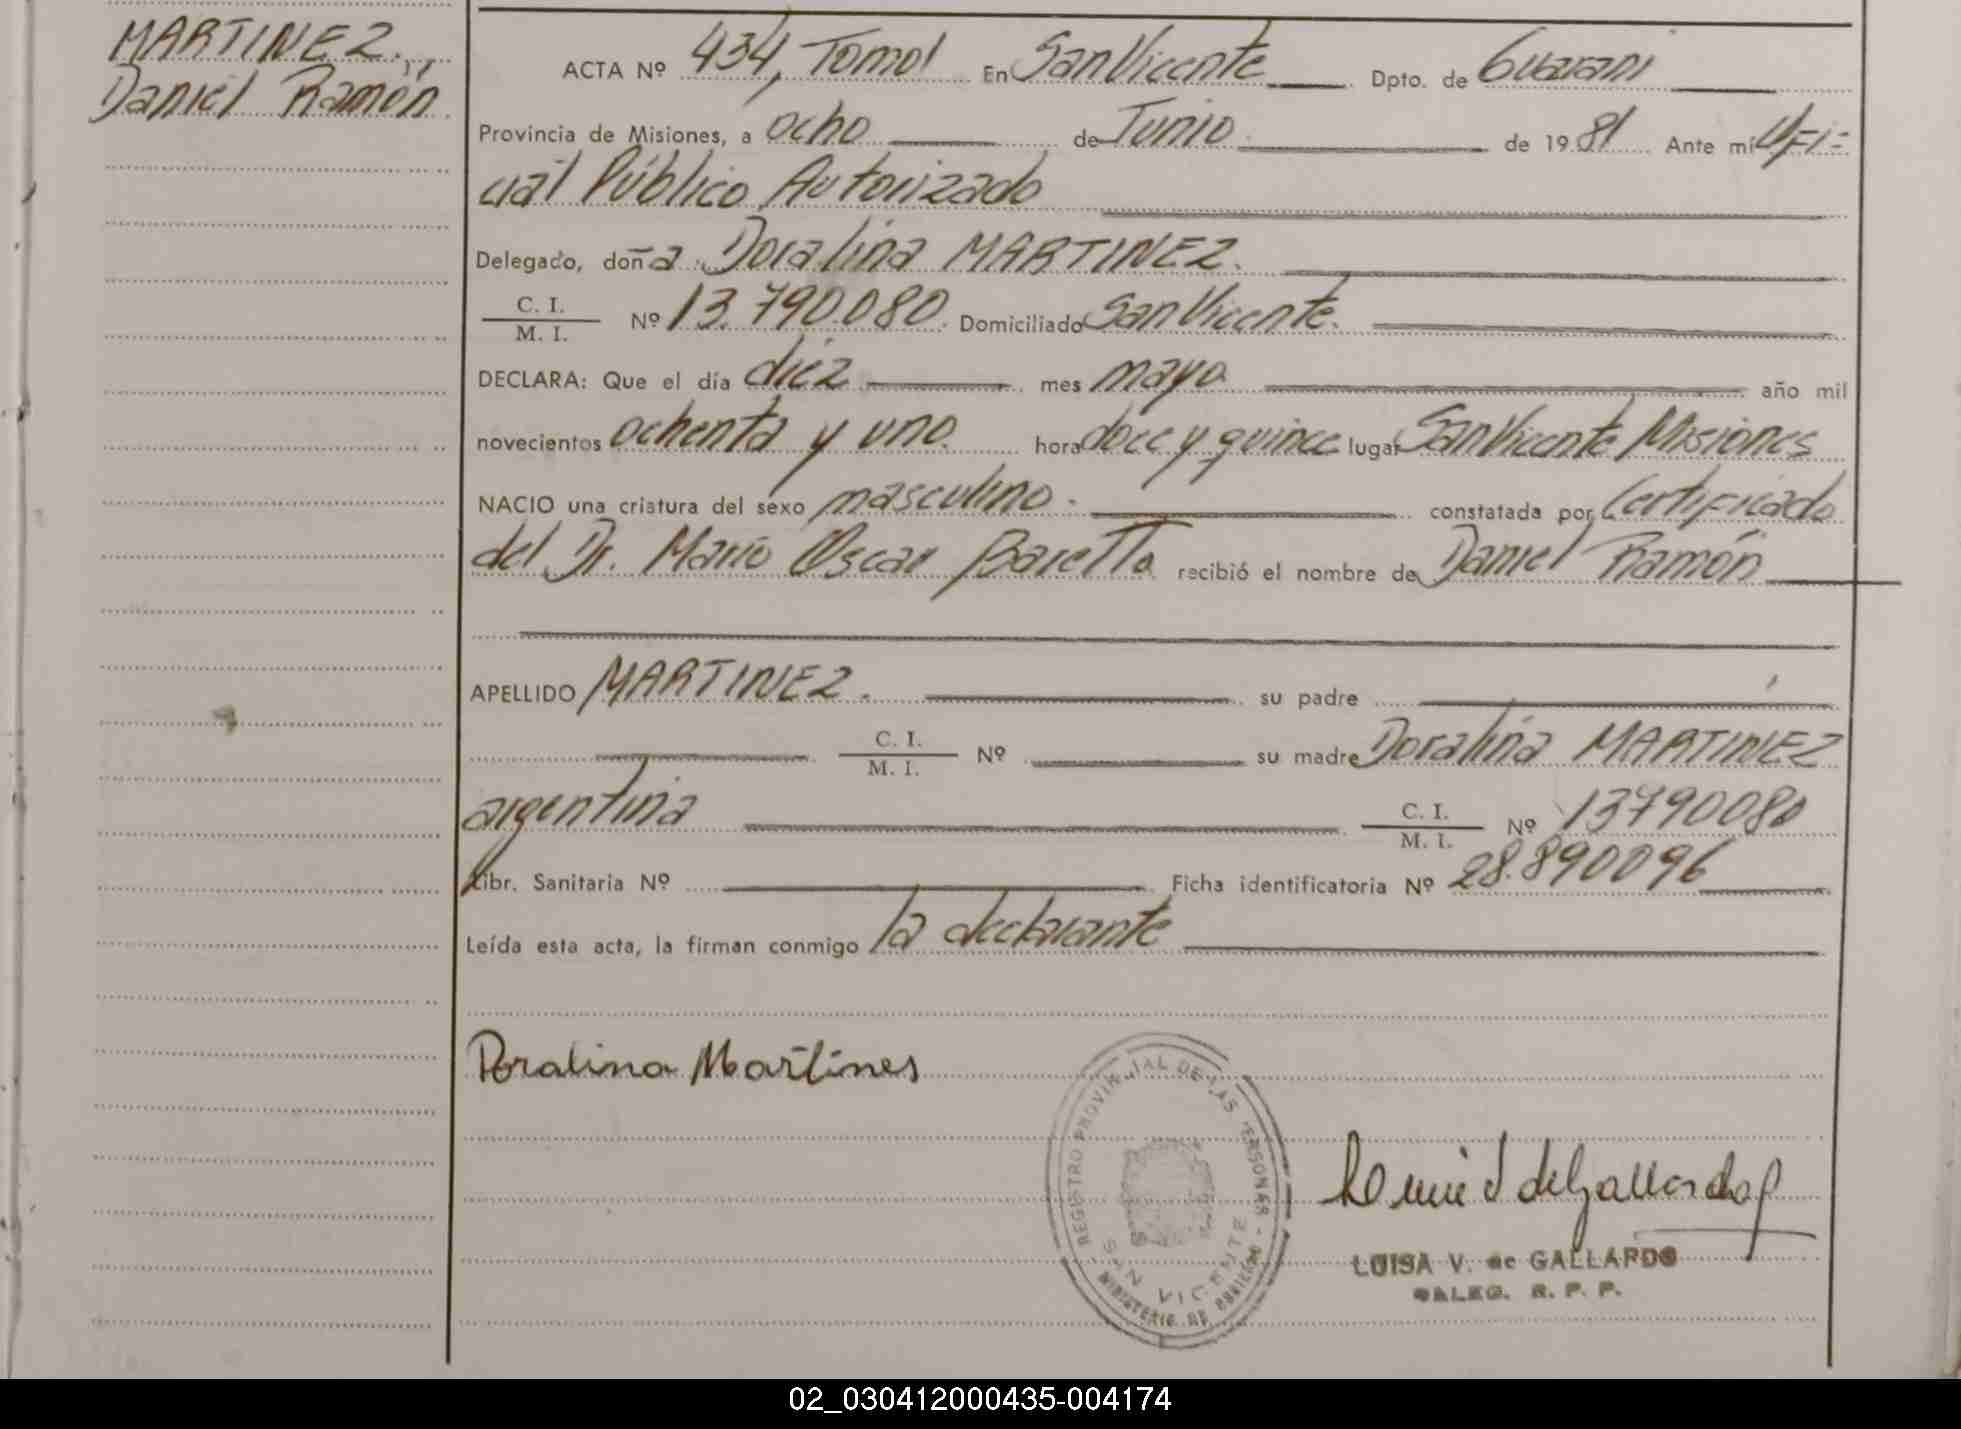 MARTINEZ.,,
Daniel Ramón
ACTA Nº 434, Tomo I En San Vicente Dpto. de Guarani
Provincia de Misiones, a ocho de Junio de 1981 Ante mí Ofi-
cial Público Autorizado
Delegado, doña Doralina MARTINEZ.
C. I.
M. I. Nº 13.790.080. Domiciliado San Vicente.
DECLARA: Que el día diez mes mayo año mil
novecientos ochenta y uno. hora doce y quince lugar San Vicente Misiones
NACIO una criatura del sexo masculino. constatada por Certificado
del Dr. Mario Oscar Baretto recibió el nombre de Daniel Ramón
APELLIDO MARTINEZ. su padre
C. I.
M. I. Nº su madre Doralina MARTINEZ
argentina C. I.
M. I. Nº 13790080
Libr. Sanitaria Nº Ficha identificatoria Nº 28.890096
Leída esta acta, la firman conmigo la declarante
Doralina Martines
REGISTRO PROVINCIAL DE LAS PERSONAS - MINISTERIO DE GOBIERNO
SAN VICENTE
de Gallardo
LUISA V. de GALLARDO
DALEG. R. P. P.
02_030412000435-004174